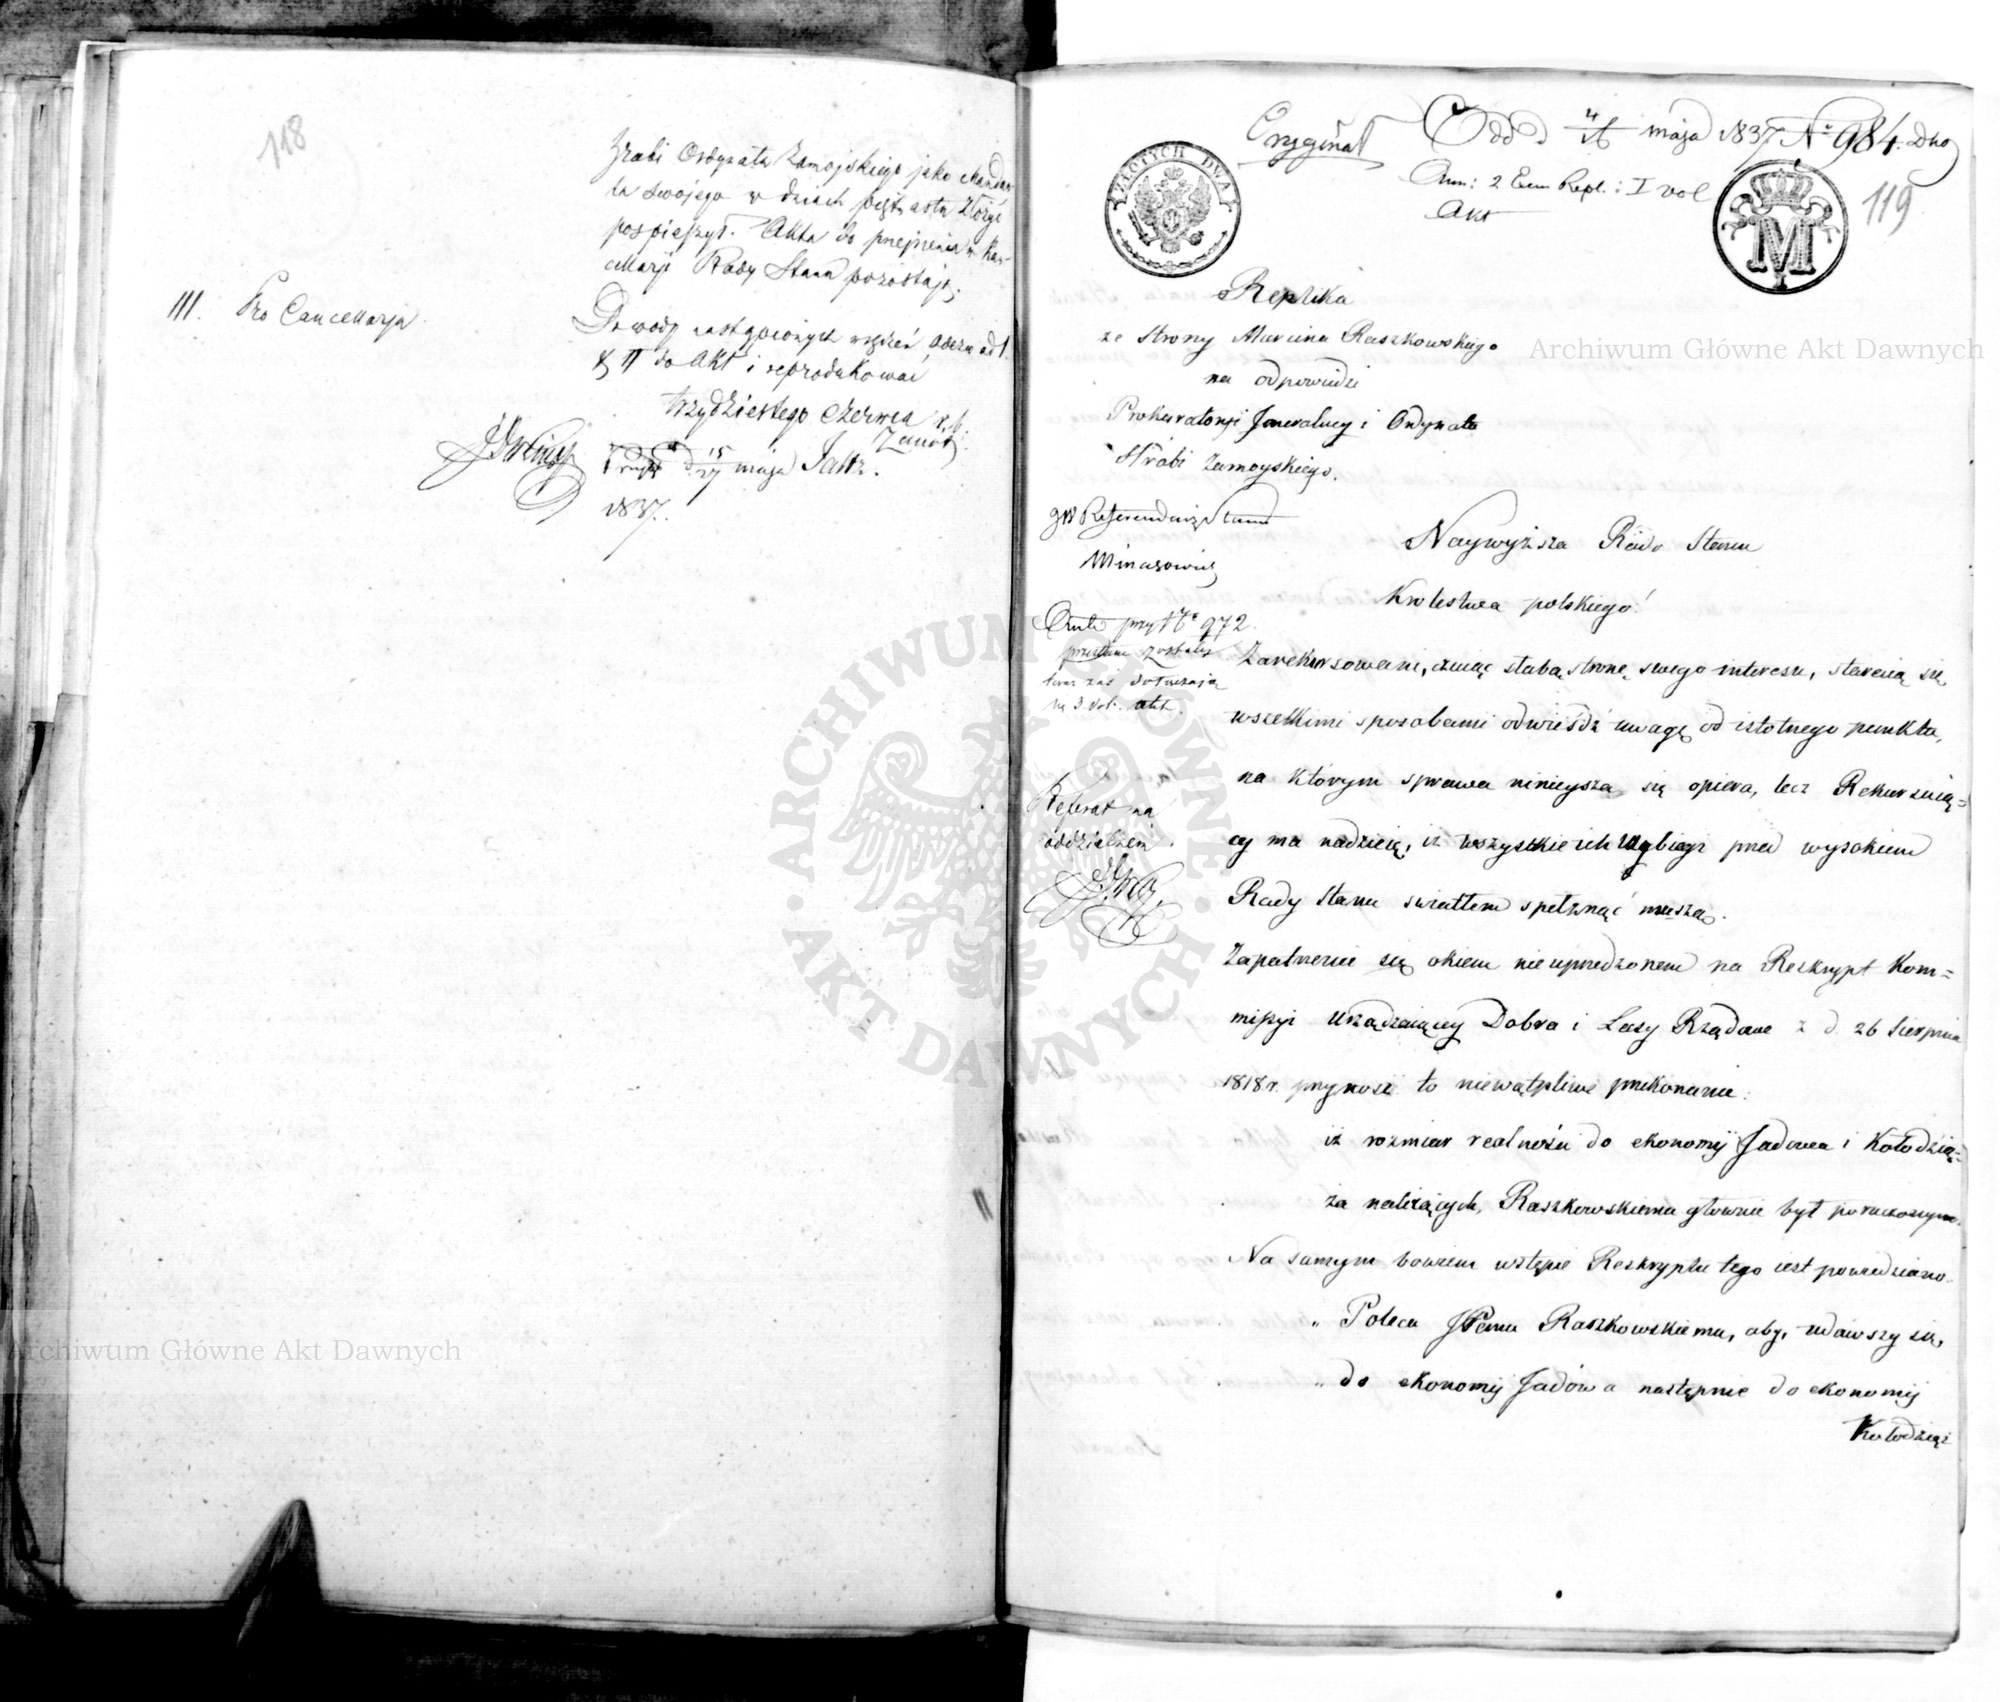 118
Hrabi Ordynata Zamojskiego jako Mandan-
ta swojego w dniach piętnastu złożyć
pospieszył. Akta do przejrzenia w Kan-
cellarji Rady Stanu pozostają.
III. Pro Cancellaria
Dowody nastąpionych wręczeń, ad I.
& II do Akt i reprodukować
trzydziestego czerwca r. b.
15/27 maja
1837.
Oryginał
Odd d 4/16 maja 1837 N° 984. Dno
Ann: 2 Exem Repl: I vol
Akt
119
ZŁOTYCH DWA
M
Replika
ze strony Marcina Raszkowskiego
na odpowiedzi
Prokuratoryi Jeneralney i Ordynata
Hrabi Zamoyskiego.
JW Referendarz Stanu
Minasowicz
Naywyższa Rado Stanu
Krolestwa polskiego!
przy N° 972.
przesłane zostały
teraz zaś dołączają
się 3. Vol. akt.
Zarekursowani, czuiąc słabą stronę swego interesu, staraią się
wszelkimi sposobami odwieśdź uwagę od istotnego punktu,
na którym sprawa ninieysza się opiera, lecz Rekursuią=
cy ma nadzieię, iż wszystkie ich wybiegi przed wysokiem
Rady Stanu swiatłem spełznąć muszą.
Referat na
oddzielnem
Zapatrzenie się okiem nieuprzedzonem na Reskrypt Kom=
missyi Urządzaiącey Dobra i Lasy Rządowe z d. 26 Sierpnia
1818 r. przynosi to niewątpliwe przekonanie:
iż rozmiar realności do ekonomij Jadowa i Kołodzią=
ża należących, Raszkowskiemu głownie był poruczonym.
Na samym bowiem wstępie Reskryptu tego iest powiedziano.
„ Poleca JPanu Raszkowskiemu, aby, udawszy się,
„ do ekonomij Jadowa następnie do ekonomij
Kołodziąż
Archiwum Główne Akt Dawnych
Archiwum Główne Akt Dawnych
ARCHIWUM GŁÓWNE · AKT DAWNYCH ·